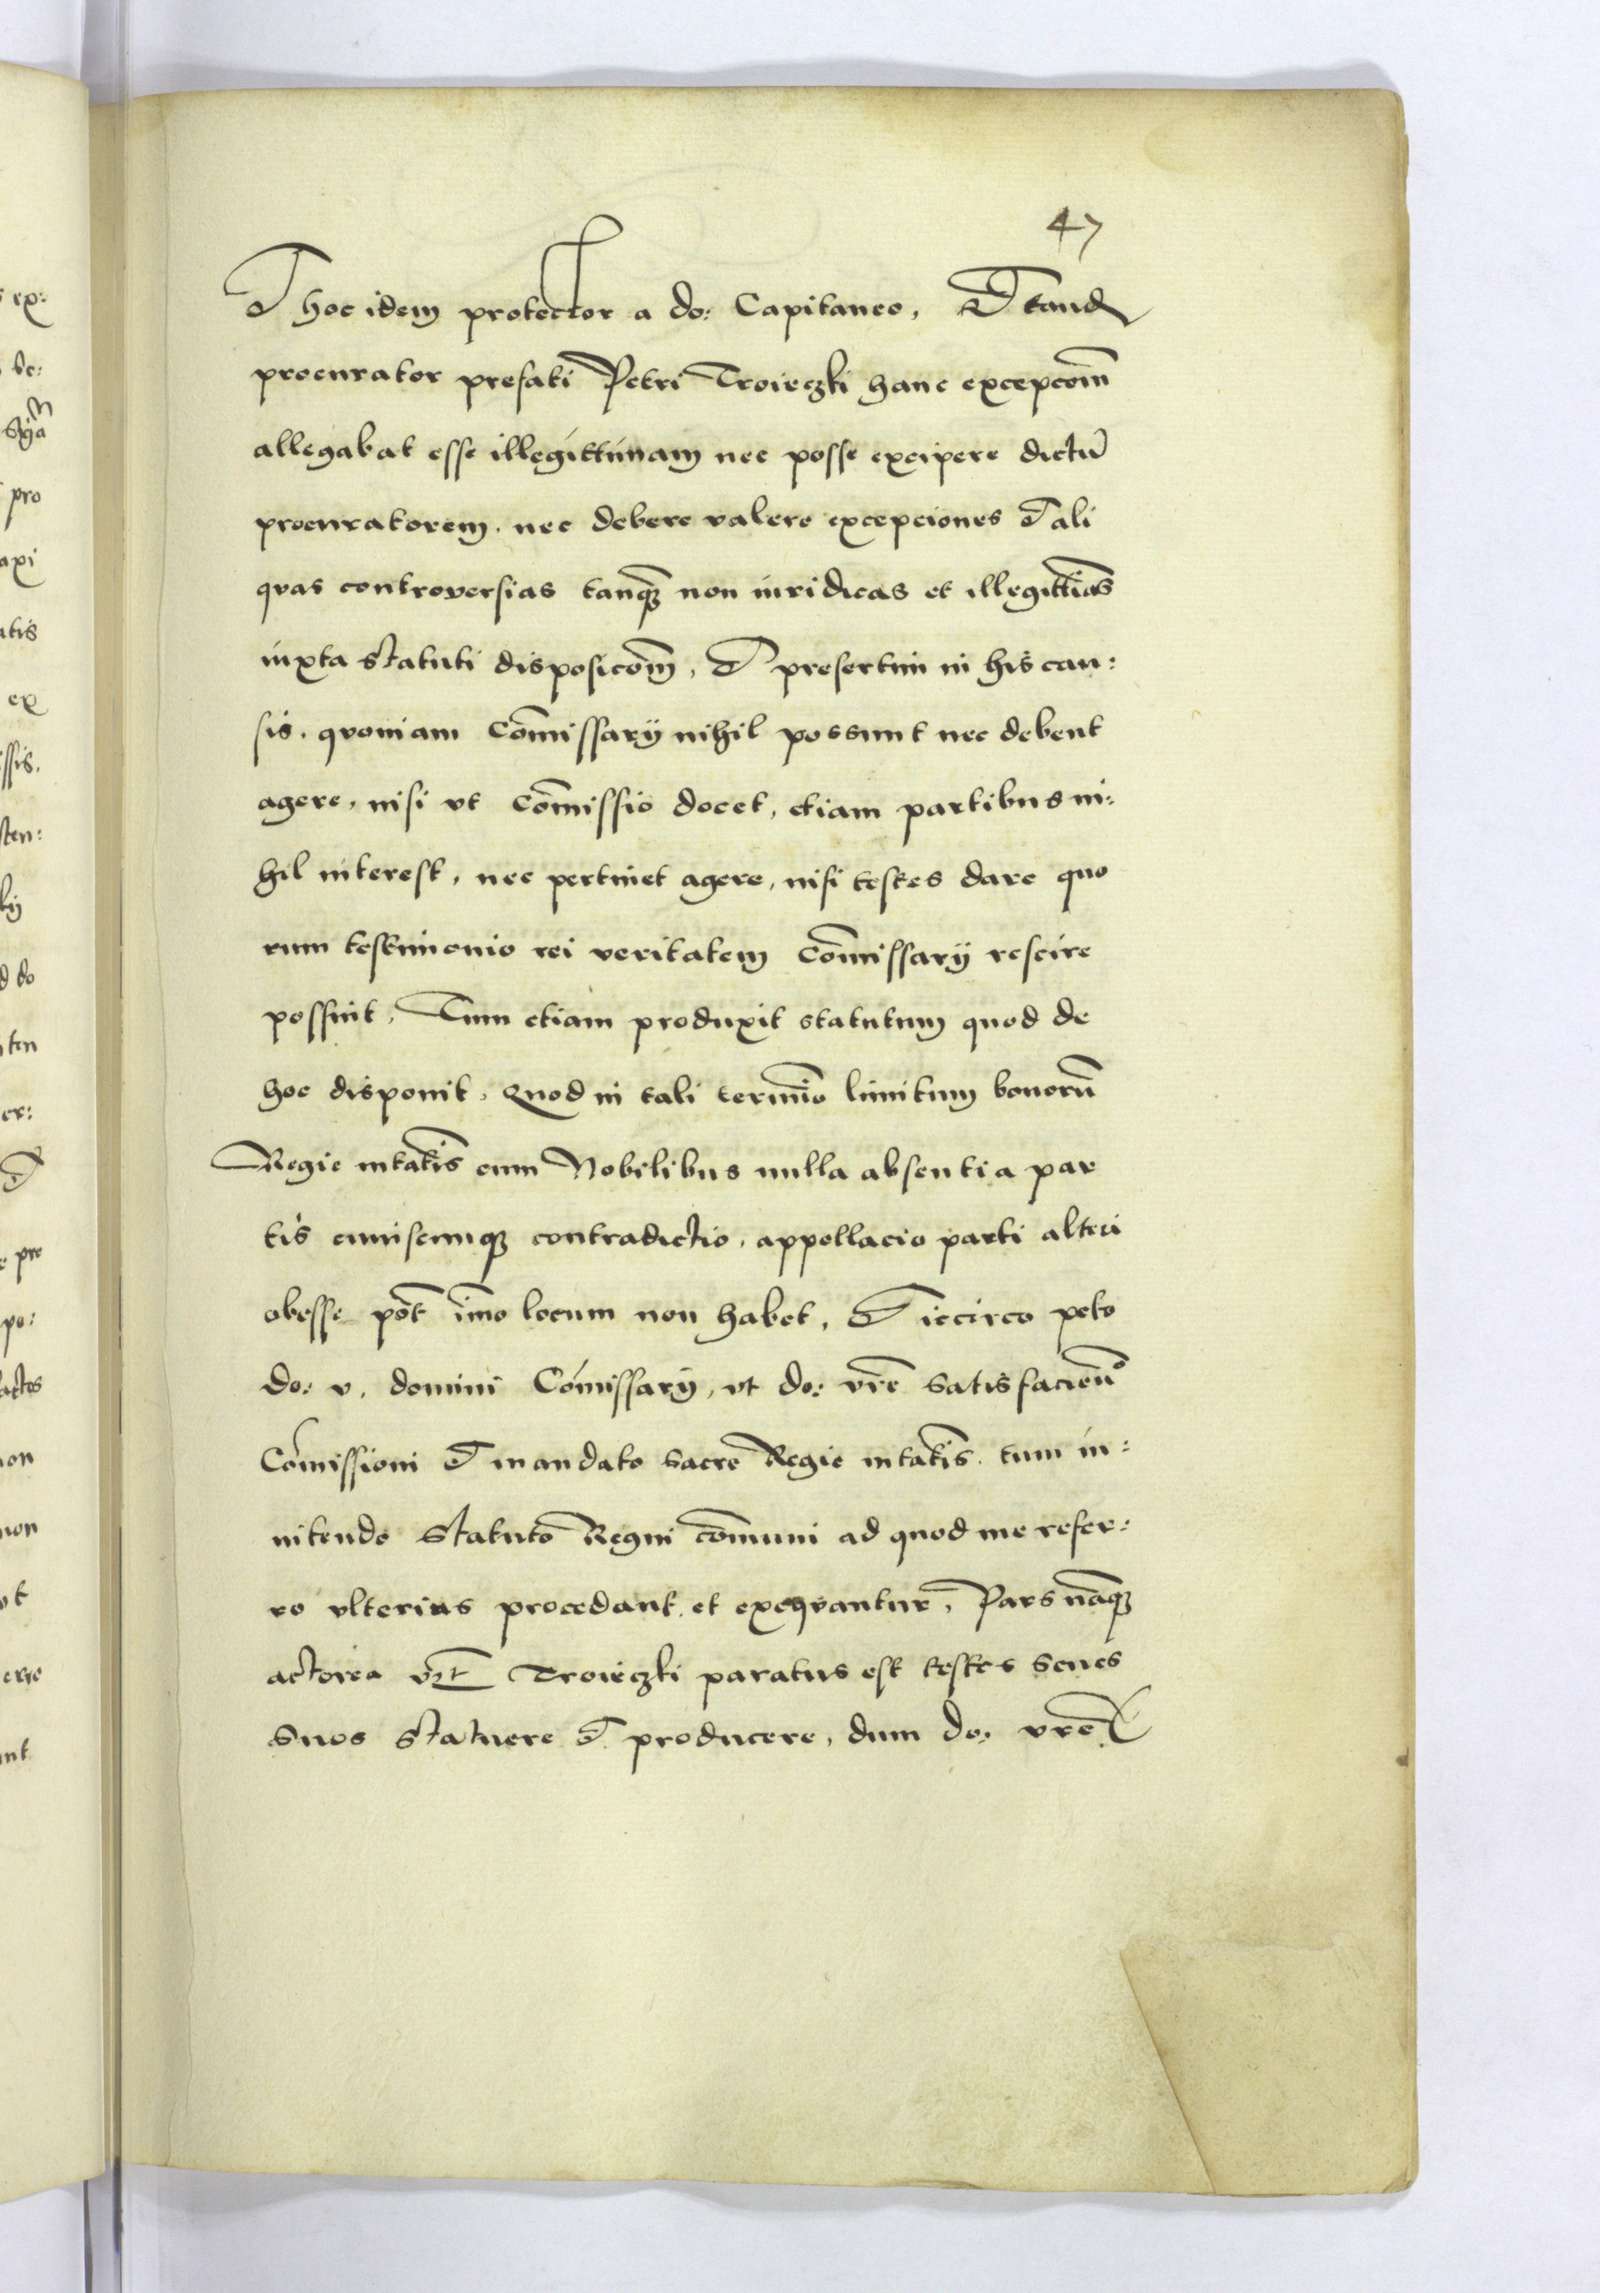 47
Et hoc idem protector a do: Capitaneo, Et tand
procurator prefati Petri Troieczki hanc excepcōm
allegabat esse illegittimam nec posse excipere dictū
procuratorem. nec debere valere excepciones et ali
quas controversias tanqȝ non iuridicas et illegittīas
iuxta statuti disposicōm, et presertim in his cau:
sis. quoniam Cōmissarÿ nihil possunt nec debent
agere, nisi vt Cōmissio docet, etiam partibus ni:
hil interest, nec pertinet agere, nisi testes dare quo
rum testimonio rei veritatem Cōmissarÿ rescire
possint, Tum etiam produxit statutum quod de
hoc disponit, Quod in tali termīo limitum bonorū
Regie mtatis cum Nobilibus nulla absentia par
tis cuiuscumqȝ contradictio, appellacio parti alteri
obesse pōt īmo locum non habet, Et iccirco peto
do: v. domini Cōmissarÿ, vt do: vrē satisfaciēn
Cōmissioni et mandato sacre Regie mtatis. tum in:
nitendo statuto Regni cōmuni ad quod me refer:
ro vlterius procedant et exequantur, Pars nāqȝ
actorea vꝫt Troieczki paratus est testes senes
suos statuere et producere, dum do: vrē
ex:
pro
api
atis
ex
ssis.
sten:
do
ten
er:
Et
pre
po:
actos
non
non
vt